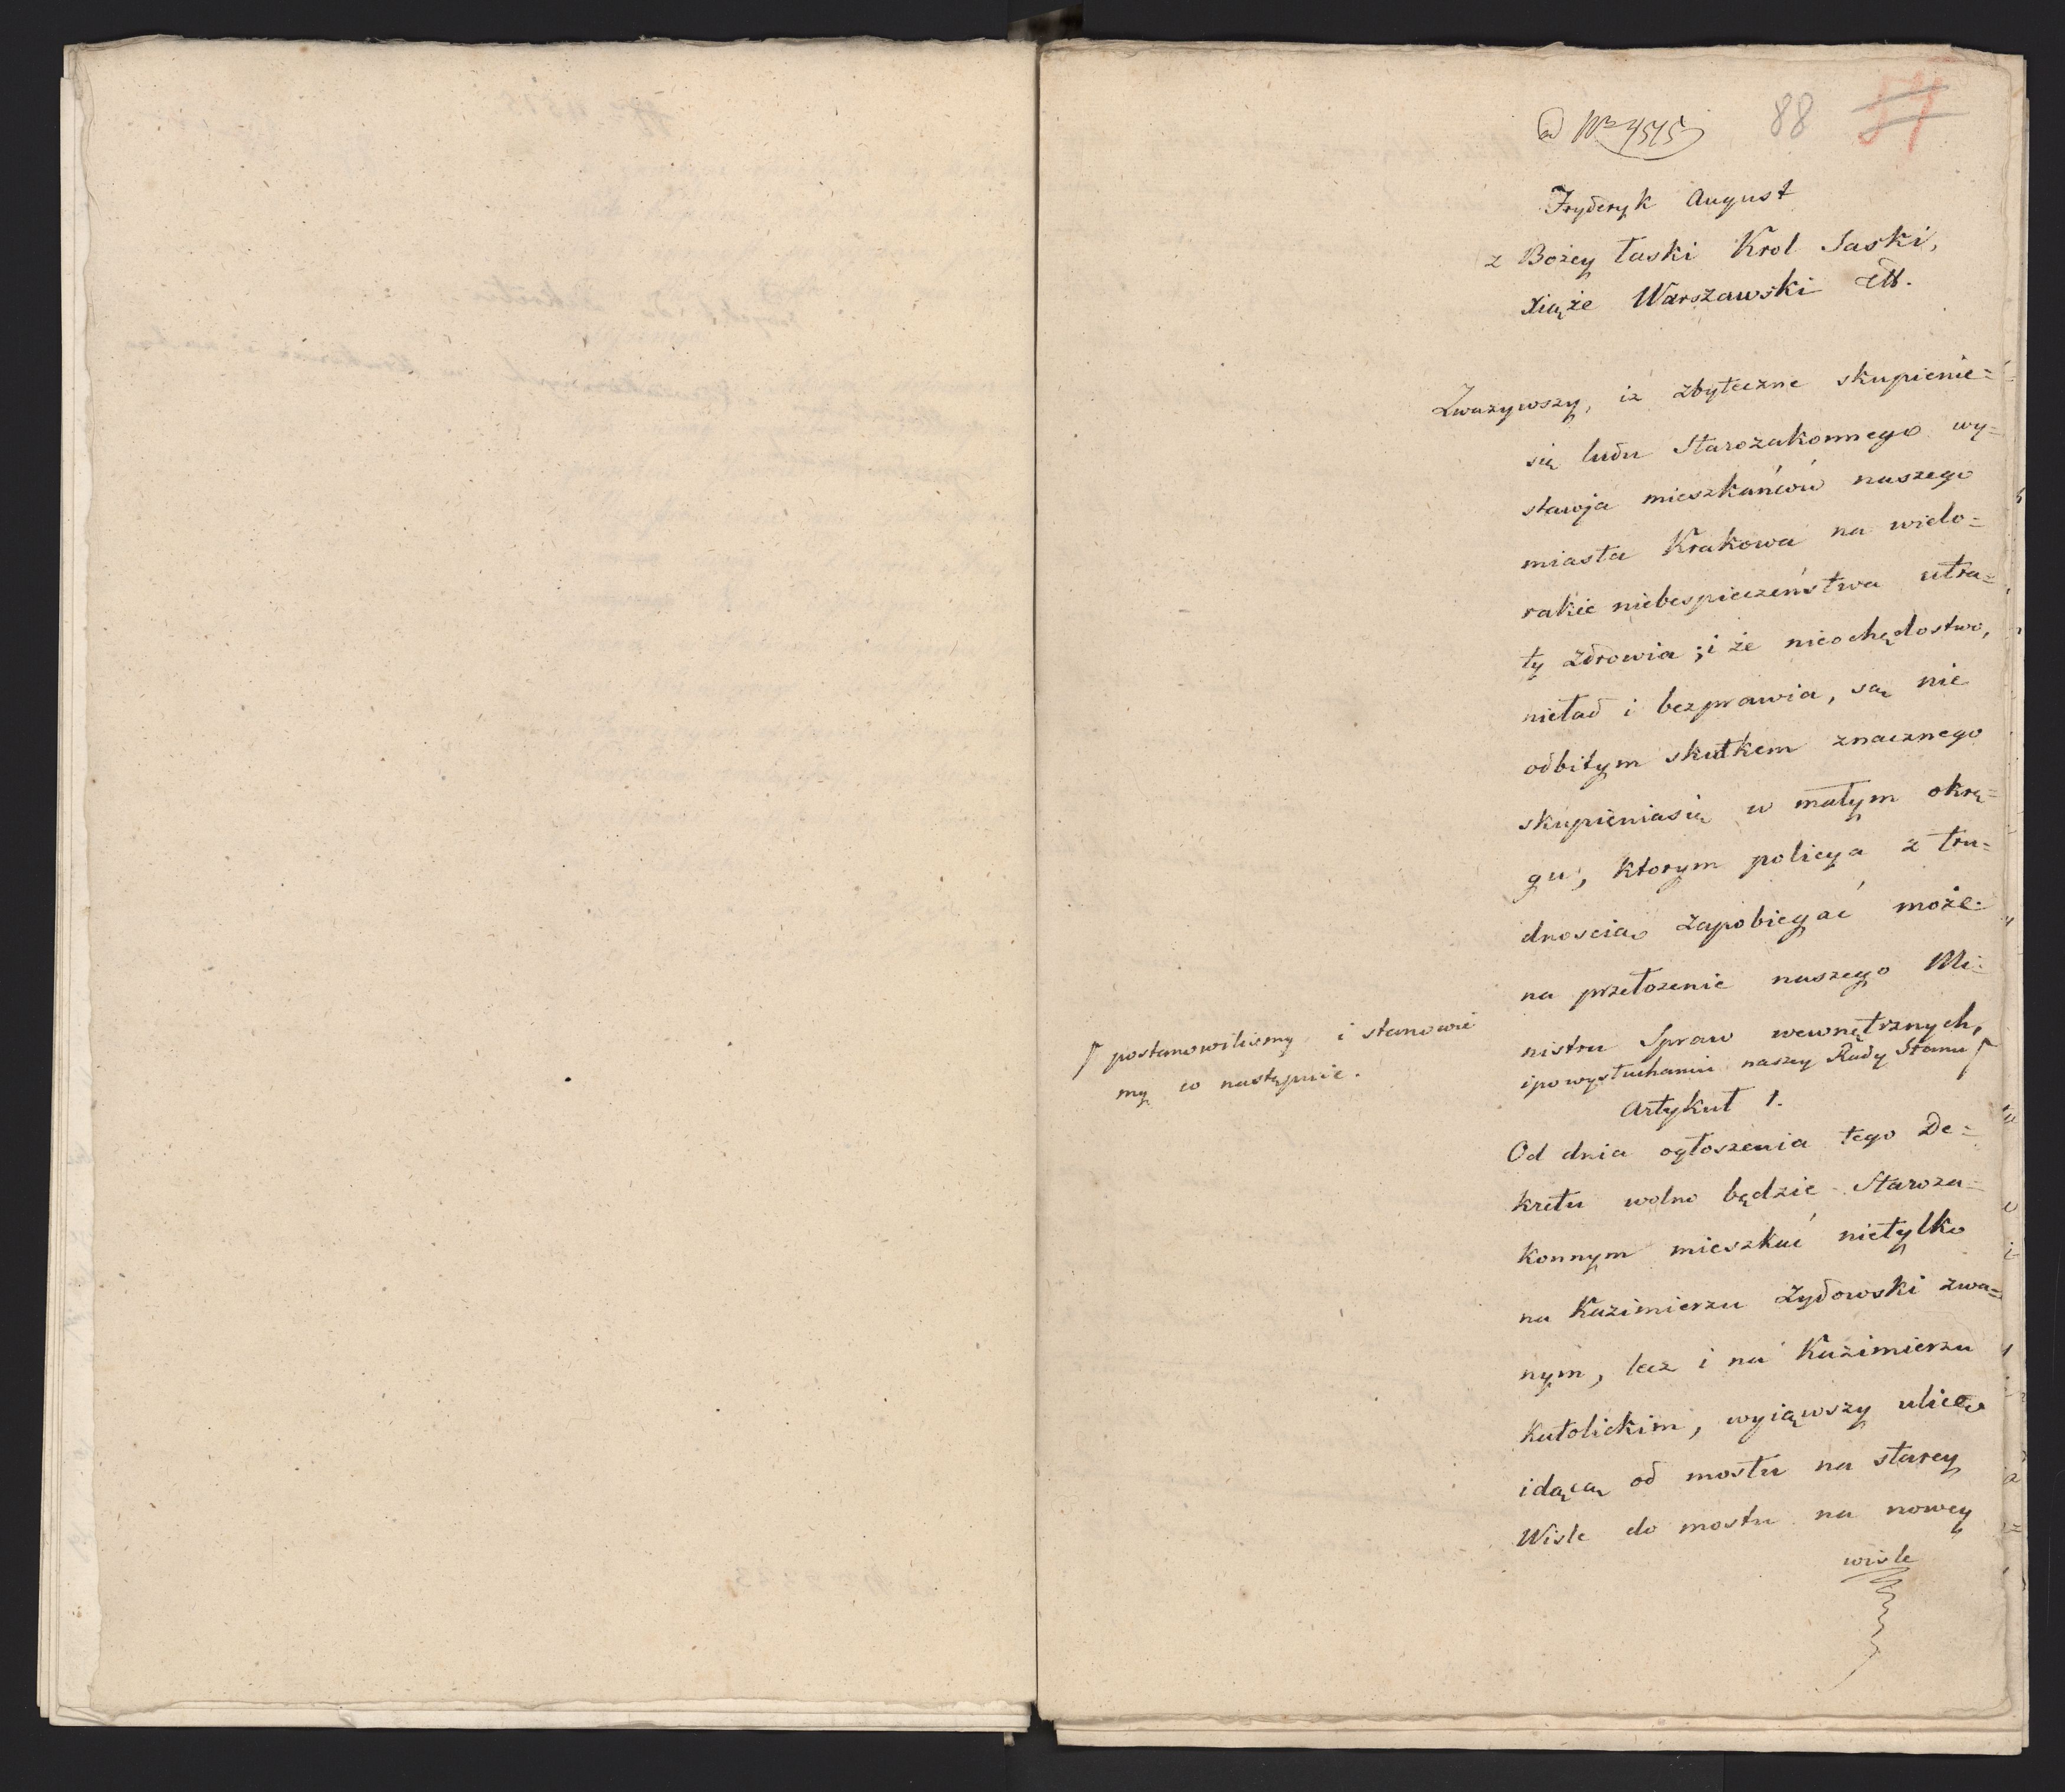 ad Nro 4515
88
Fryderyk August
z Bożey łaski Krol Saski,
Xiąże Warszawski ett.
Zważywszy, iż zbyteczne skupienie=
się ludu Starozakonnego wy=
stawia mieszkańców naszego
miasta Krakowa na wielo=
rakie niebespieczeństwa utra=
ty zdrowia; i że nieochędostwo,
nieład i bezprawia, są nie
odbitym skutkem znacznego
skupieniasię w małym okrę=
gu, ktorym policya z tru=
dnoscią zapobiegać może.
na przełozenie naszego Mi=
nistra Spraw wewnętrznych,
i po wysłuchaniu naszey Rady Stanu /
/ postanowilismy i stanowie
my co następuie.
Artykuł 1.
Od dnia ogłoszenia tego De=
kretu wolno będzie Staroza=
konnym mieszkać nietylko
na Kazimierzu Zydowski zwa=
nym, lecz i na Kazimierzu
Katolickim, wyiąwszy ulicę
idącą od mostu na starey
Wisle do mostu na nowey
wisle